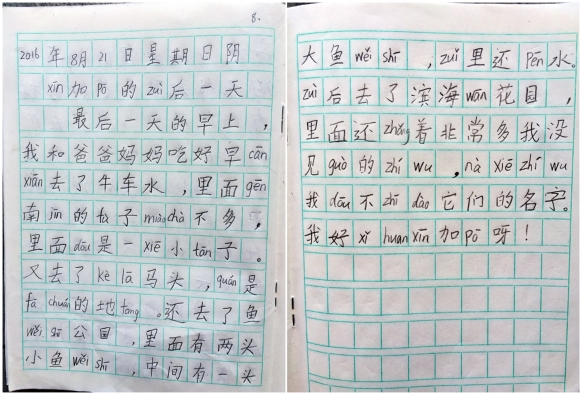 8.
2016年8月21日星期日阴
xīn加pō的zuì后一天
最后一天的早上，
我和爸爸妈妈吃好早cān
xiān去了牛车水，里面gēn
南jīn的fū子miào chà不多，
里面dōu是一xiē小tān子。
又去了kè lā马头，quán是
fā chuán的地fang。还去了鱼
wěi sī公园，里面有两头
小鱼wěi shī，中间有一头
大鱼wěi shī，zuǐ里还pēn水。
zuì后去了滨海wān花园，
里面还zhǎng着非常多我没
见guò的zhí wu，nà xiē zhí wu
我dōu不zhī dào它们的名字。
我好xǐ huan xīn加pō呀！